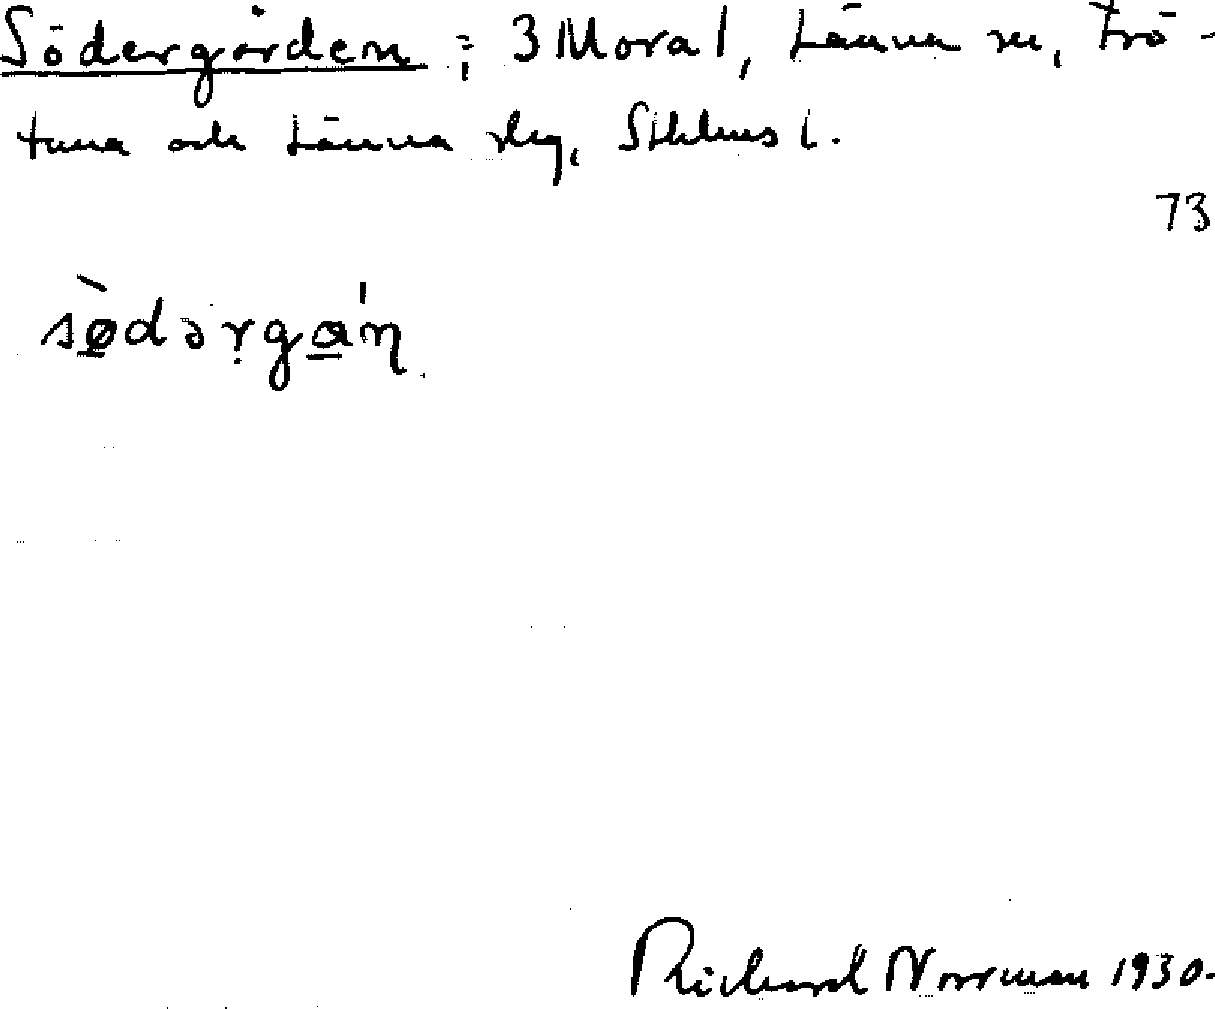 Södergården ; 3 Mora 1, Länna sn, Frö-
tuna och Länna slg, Sthlms l.
73
sø̱̀dərg̣a̱'ɳ
Richard Norrman 1930.